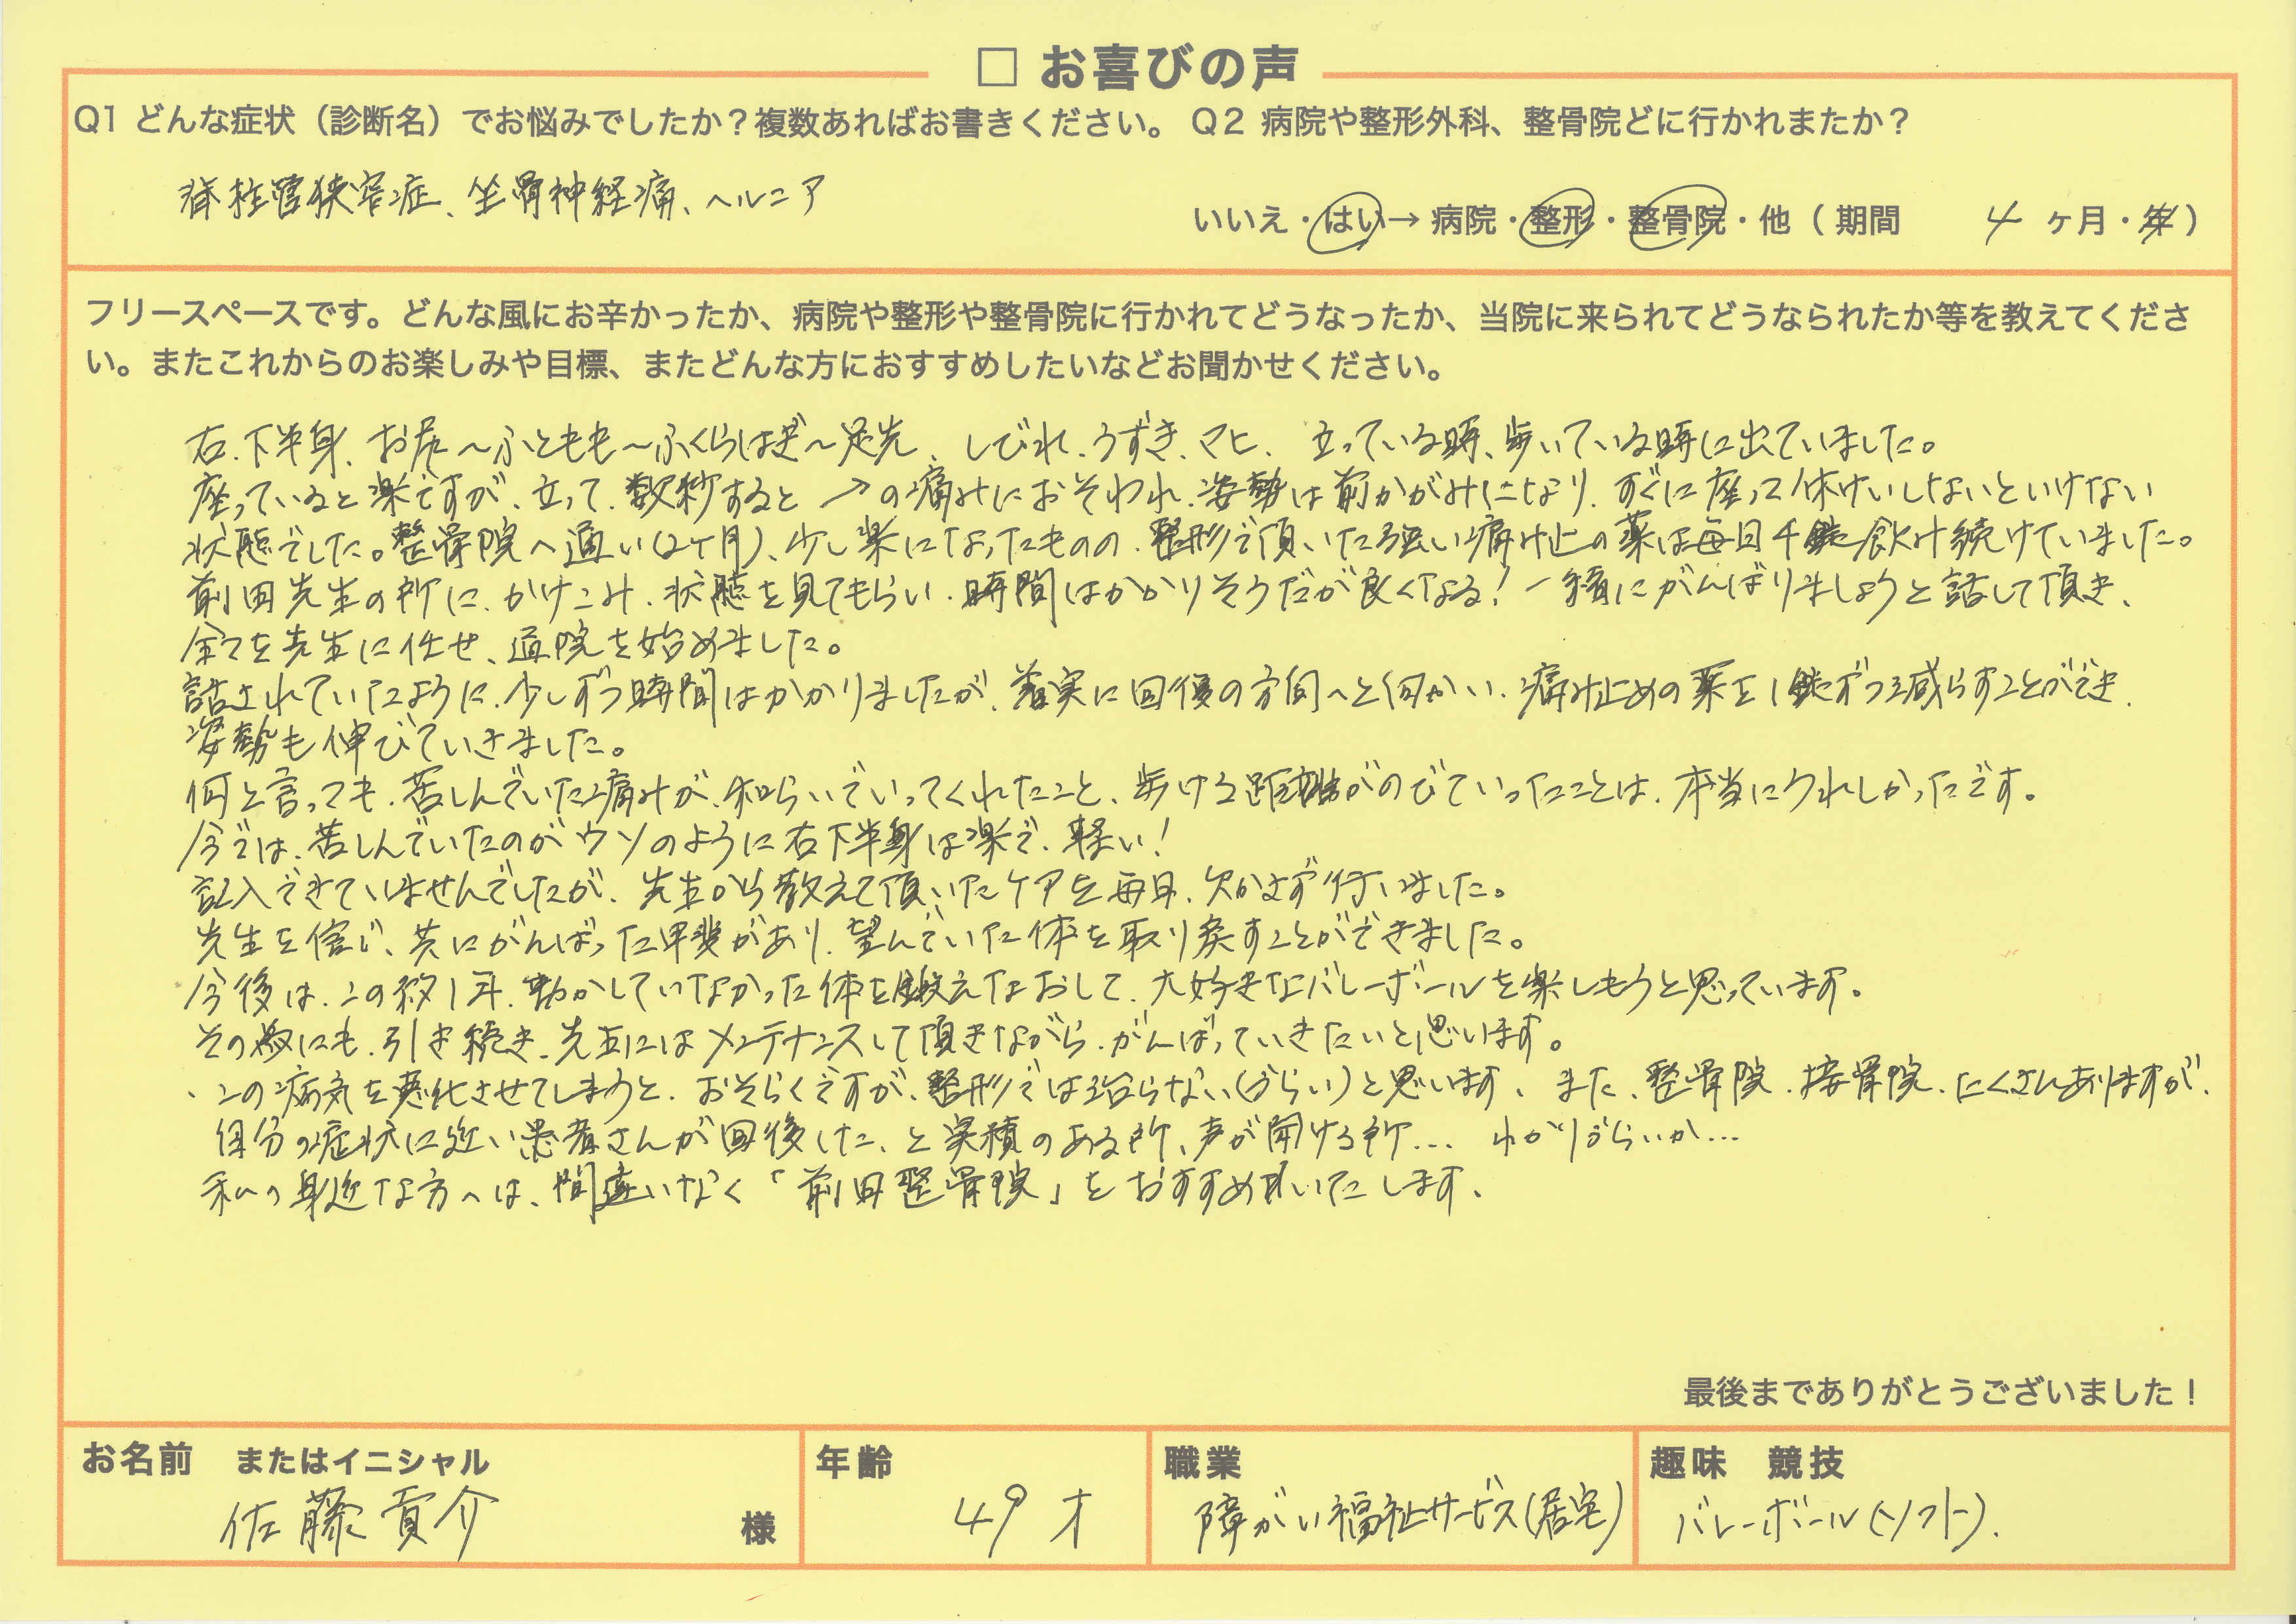 □ お喜びの声
Q1 どんな症状（診断名）でお悩みでしたか？複数あればお書きください。 Q2 病院や整形外科、整骨院どに行かれまたか？
脊柱管狭窄症、坐骨神経痛、ヘルニア
いいえ・はい→ 病院・整形・整骨院・他（ 期間 4 ヶ月・年）
フリースペースです。どんな風にお辛かったか、病院や整形や整骨院に行かれてどうなったか、当院に来られてどうなられたか等を教えてくださ
い。またこれからのお楽しみや目標、またどんな方におすすめしたいなどお聞かせください。
右、下半身、お尻〜ふともも〜ふくらはぎ〜足先、しびれ、うずき、マヒ、立っている時、歩いている時に出ていました。
座っていると楽ですが、立って、数秒すると ↗の痛みにおそわれ、姿勢は前かがみになり、すぐに座って休けいしないといけない
状態でした。整骨院へ通い(2ヶ月)、少し楽になったものの、整形で頂いた強い痛み止の薬は毎日4錠飲み続けていました。
前田先生の所に、かけこみ、状態を見てもらい、時間はかかりそうだが良くなる！一緒にがんばりましょうと話して頂き、
全てを先生に任せ、通院を始めました。
話されていたように、少しずつ時間はかかりましたが、着実に回復の方向へと向かい、痛み止めの薬を1錠ずつ減らすことができ、
姿勢も伸びていきました。
何と言っても、苦しんでいた痛みが、和らいでいってくれたこと、歩ける距離がのびていったことは、本当にうれしかったです。
今では、苦しんでいたのがウソのように右下半身は楽で、軽い！
記入できていませんでしたが、先生から教えて頂いたケアを毎日、欠かさず行いました。
先生を信じ、共にがんばった甲斐があり、望んでいた体を取り戻すことができました。
今後は、この約1年、動かしていなかった体を鍛えなおして、大好きなバレーボールを楽しもうと思っています。
その為にも、引き続き、先生にはメンテナンスして頂きながら、がんばっていきたいと思います。
、この病気を悪化させてしまうと、おそらくですが、整形では治らない(づらい)と思います、また、整骨院、接骨院、たくさんありますが、
自分の症状に近い患者さんが回復した、と実積のある所、声が聞ける所… わかりづらいか…
私の身近な方へは、間違いなく「前田整骨院」をおすすめいたします、
最後までありがとうございました！
お名前 またはイニシャル
佐藤 貢介 様
年齢
49 才
職業
障がい福祉サービス(居宅)
趣味 競技
バレーボール(ソフト)、